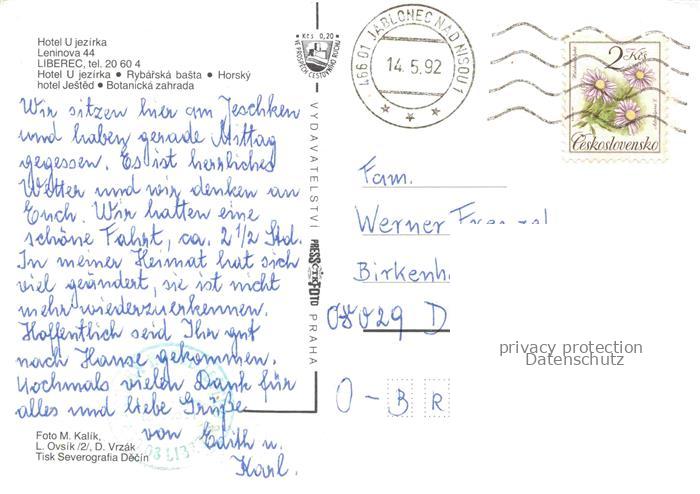 Hotel U jezírka
Leninova 44
LIBEREC, tel. 20 60 4
Hotel U jezírka ● Rybářská bašta ● Horský
hotel Ještěd ● Botanická zahrada
Wir sitzen hier am Jeschken
und haben gerade Mittag
gegessen. Es ist herrliches
Wetter und wir denken an
Euch. Wir hatten eine
schöne Fahrt, ca. 2 1/2 Std.
In meiner Heimat hat sich
viel geändert, sie ist nicht
mehr wiederzuerkennen.
Hoffentlich seid Ihr gut
nach Hause gekommen.
Nochmals vielen Dank für
alles und liebe Grüße
von Edith u.
Karl.
Foto M. Kalík,
L. Ovsík /2/, D. Vrzák
Tisk Severografia Děčín
Kčs 0,20
VE PROSPĚCH CESTOVNÍHO RUCHU
VYDAVATELSTVÍ PRESSFOTO PRAHA
466 01 JABLONEC NAD NISOU 1
14.5.92
2 Kčs
Československo
Fam.
Werner
Birkenh.
D
O - B R
privacy protection
Datenschutz